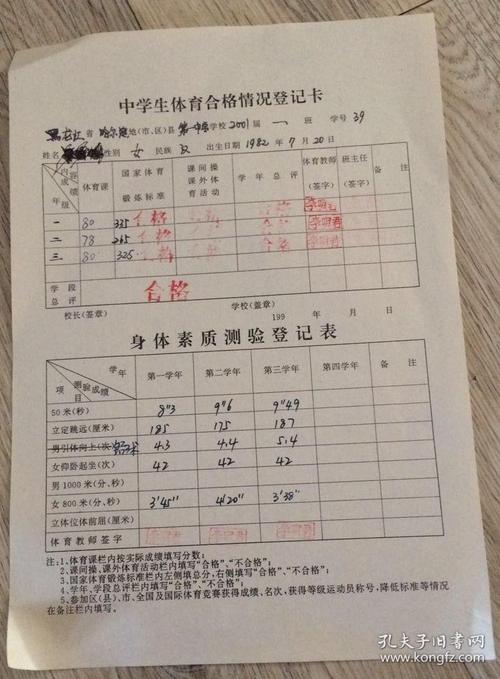 中学生体育合格情况登记卡
黑龙江 省 哈尔滨 地(市、区)县 第一中 学校 2001 届 一 班 学号 39
姓名 性别 女 民族 汉 出生日期 1982 年 7 月 20 日
内容 成绩 年级 体育课 国家体育锻炼标准 课间操课外体育活动 学年总评 体育教师(签字) 班主任(签字) 备注
一 80 335 合格 合格 李明君
二 78 265 合格 合格 李明君
三 80 325 合格 合格 李明君
学段总评 合格
校长(签章) 学校(盖章)
199 年 月 日
身体素质测验登记表
学年 测验成绩 项目 第一学年 第二学年 第三学年 第四学年 备注
50米(秒) 8"3 9"6 9"49
立定跳远(厘米) 185 175 187
男引体向上(次) 4.3 4.4 5.4
女仰卧起坐(次) 42 42 42
男1000米(分、秒)
女800米(分、秒) 3'45" 4'20" 3'38"
立体位体前屈(厘米)
体育教师签字 李明君 李明君 李明君
注:1、体育课栏内按实际成绩填写分数;
2、课间操、课外体育活动栏内填写“合格”、“不合格”;
3、国家体育锻炼标准栏内左侧填总分,右侧填写“合格”、“不合格”;
4、学年、学段总评栏内填写“合格”、“不合格”;
5、参加区(县)、市、全国及国际体育竞赛获得成绩、名次,获得等级运动员称号,降低标准等情况
在备注栏内填写。
孔夫子旧书网
www.kongfz.com